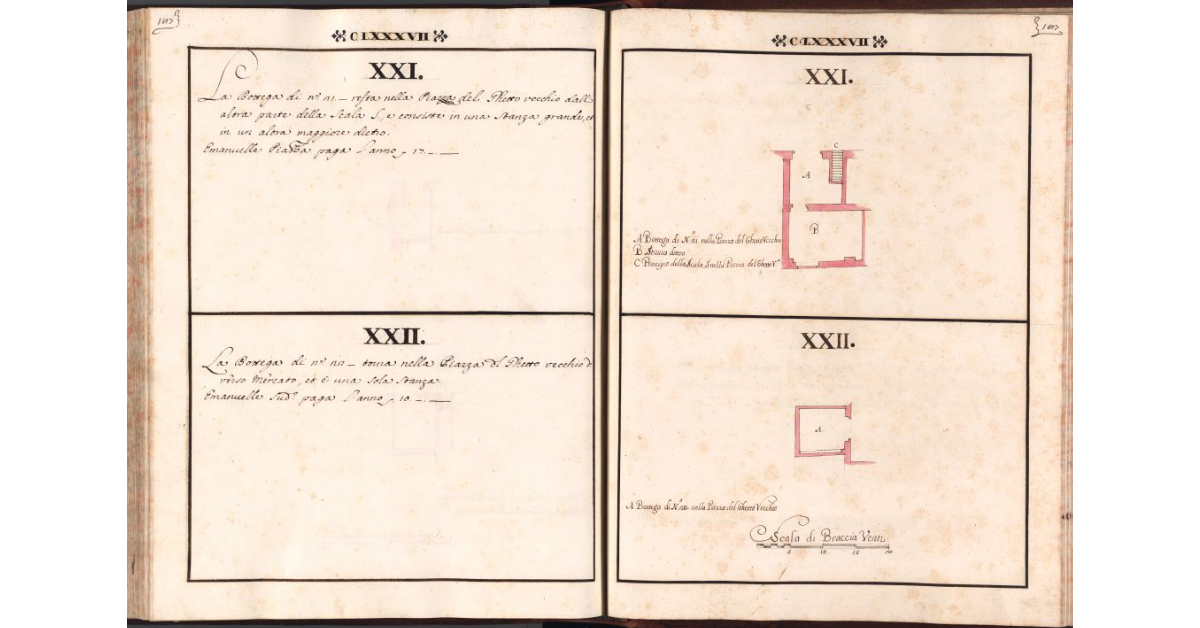 187
CLXXXVII
XXI.
La Bottega di nº 21. resta nella Piazza del Ghetto vecchio dall
altra parte della Scala S, e consiste in una Stanza grande, et
in un altra maggiore dietro.
Emanuelle paga l'anno 12. —
XXII.
La Bottega di nº 22. torna nella Piazza del Ghetto vecchio
verso Mercato, et è una sola Stanza
Emanuelle Sudº paga l'anno 10. —
187
CLXXXVII
XXI.
C
A
B
A Bottega di Nº 21 nella Piazza del Ghetto Vecchio
B Stanza dietro
C Principio della Scala S nella Piazza del Ghetto Vº
XXII.
A
A Bottega di Nº 22 nella Piazza del Ghetto Vecchio
Scala di Braccia Venti
5 10 15 20